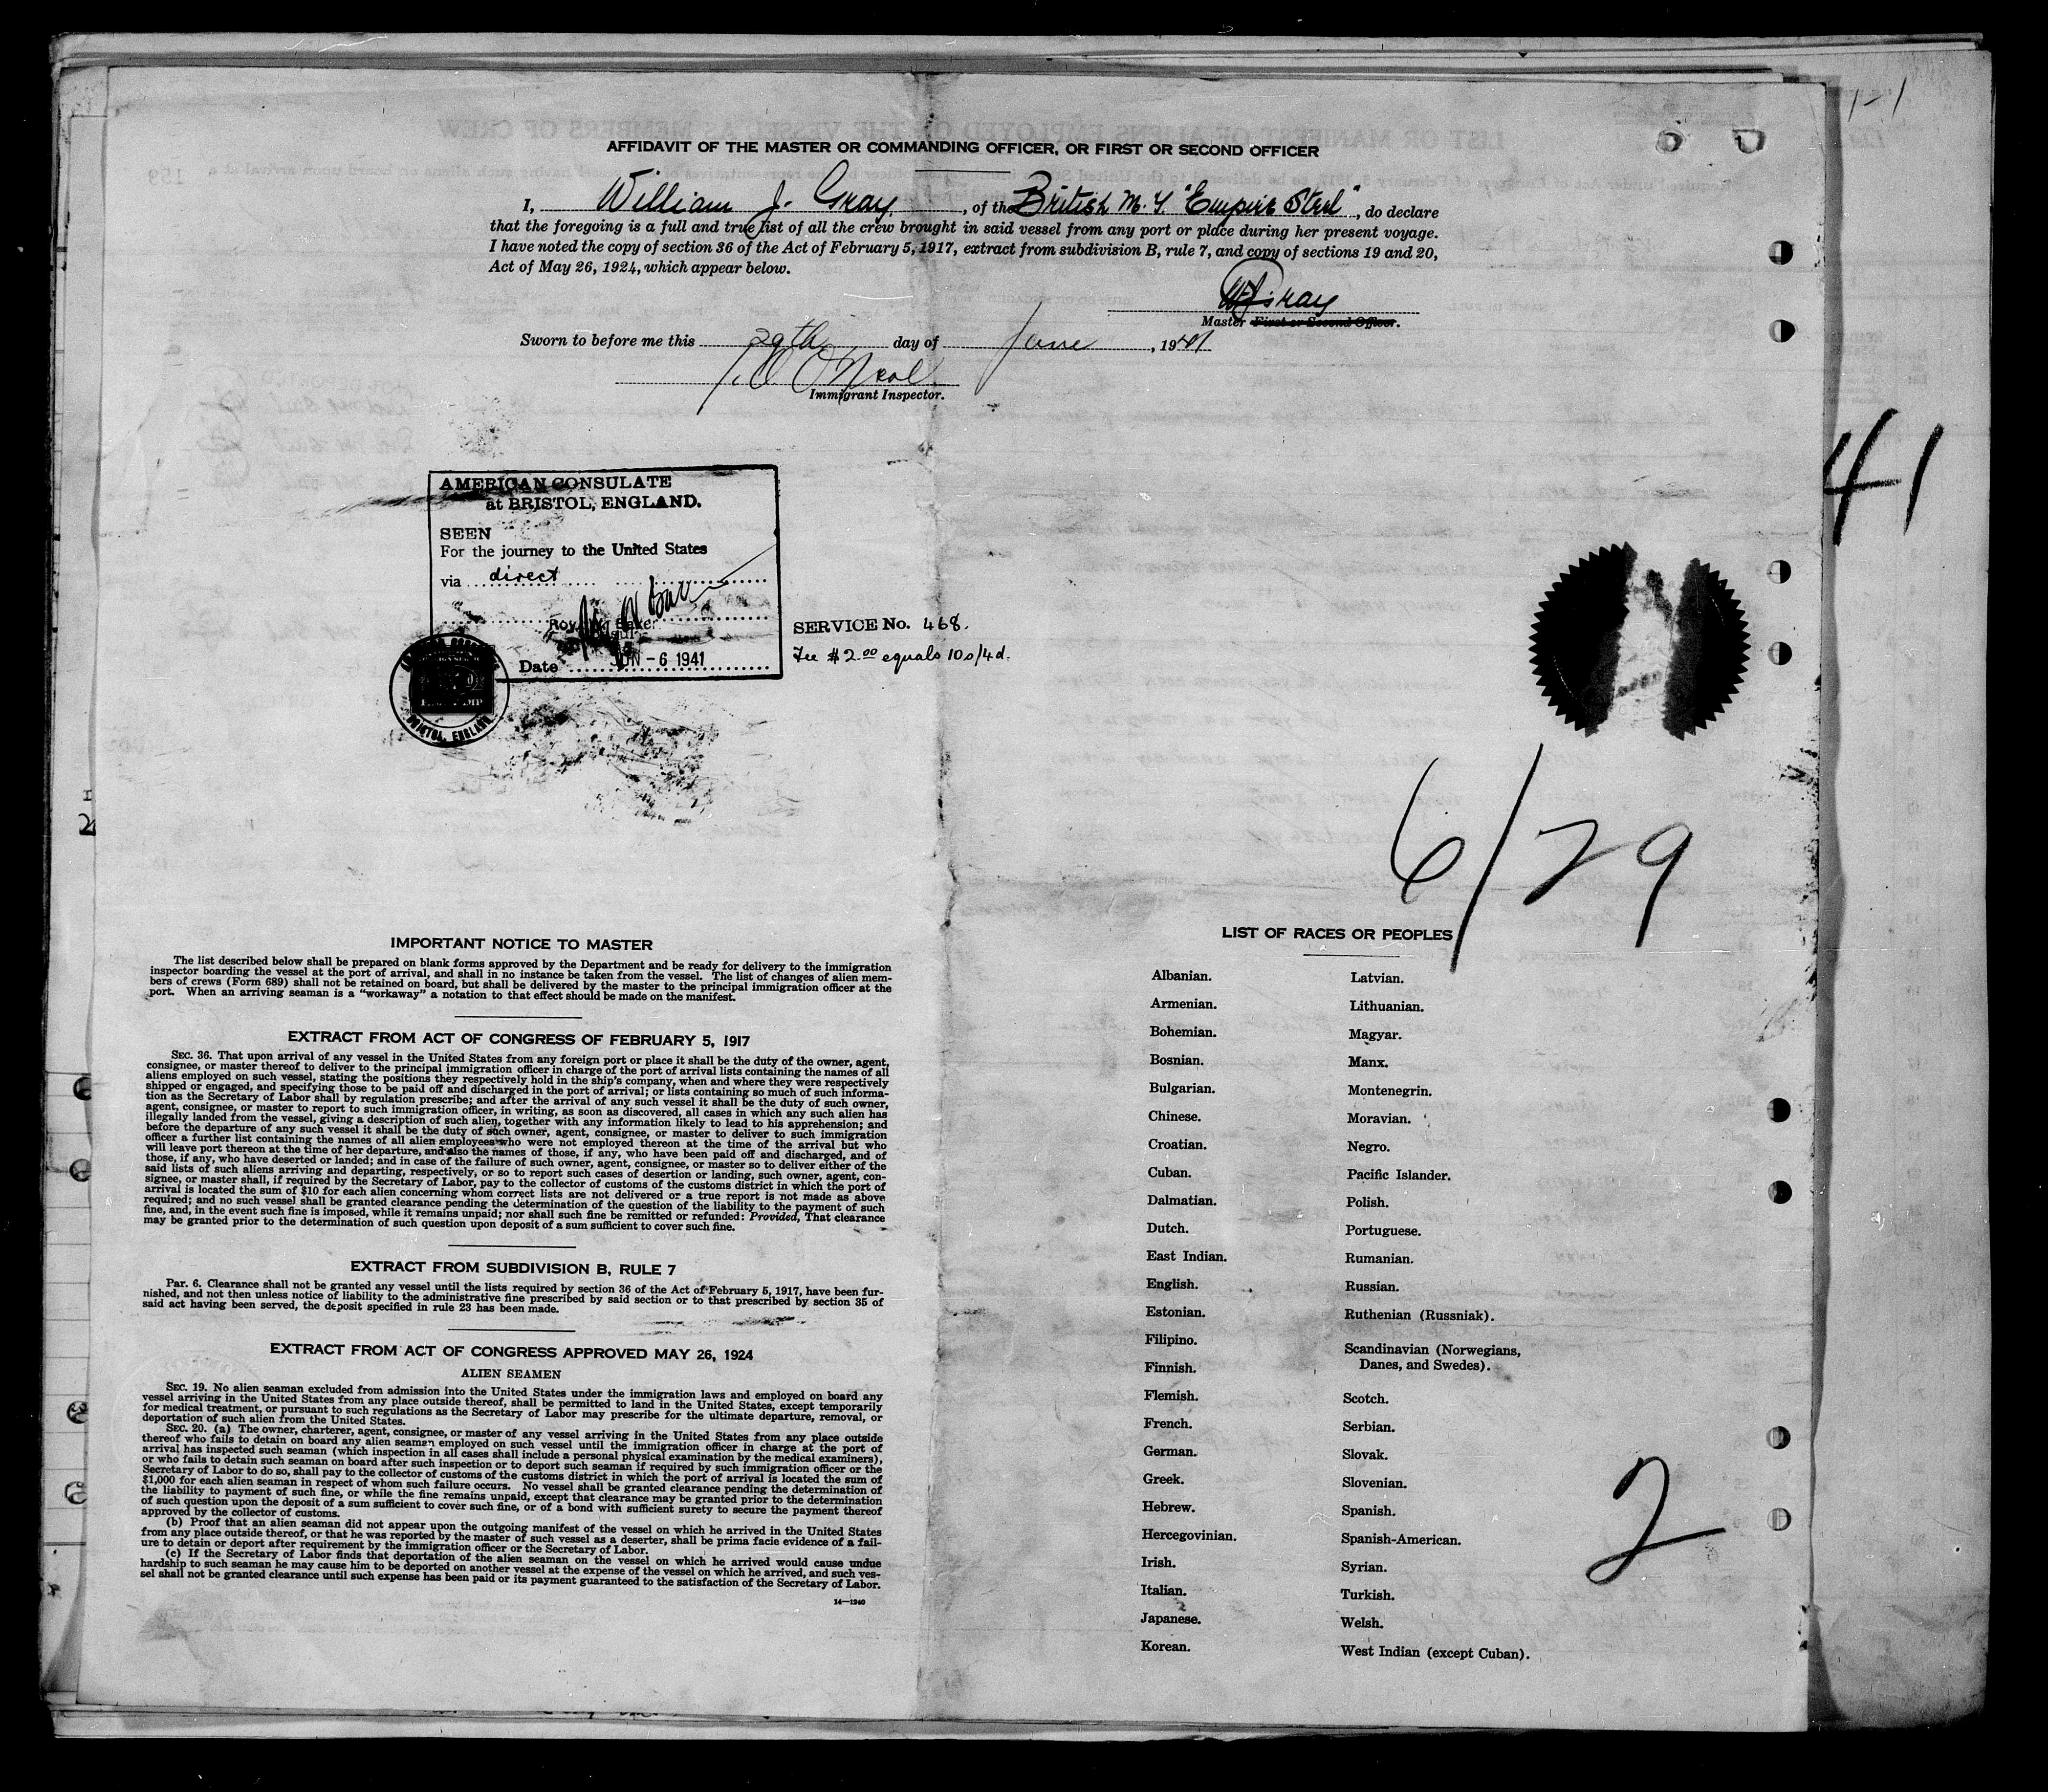 1-1
AFFIDAVIT OF THE MASTER OR COMMANDING OFFICER, OR FIRST OR SECOND OFFICER
I, William J. Gray, of the British M.V. "Empire Steel", do declare
that the foregoing is a full and true list of all the crew brought in said vessel from any port or place during her present voyage.
I have noted the copy of section 36 of the Act of February 5, 1917, extract from subdivision B, rule 7, and copy of sections 19 and 20,
Act of May 26, 1924, which appear below.
WJGray
Master First or Second Officer.
Sworn to before me this 29th day of June, 1941
O'Neal
Immigrant Inspector.
41
AMERICAN CONSULATE
at BRISTOL, ENGLAND.
SEEN
For the journey to the United States
via direct
Baker
Date JUN - 6 1941
BRISTOL, ENGLAND
SERVICE No. 468.
Fee $2.00 equals 10s/4d.
6/29
IMPORTANT NOTICE TO MASTER
The list described below shall be prepared on blank forms approved by the Department and be ready for delivery to the immigration
inspector boarding the vessel at the port of arrival, and shall in no instance be taken from the vessel. The list of changes of alien mem-
bers of crews (Form 689) shall not be retained on board, but shall be delivered by the master to the principal immigration officer at the
port. When an arriving seaman is a "workaway" a notation to that effect should be made on the manifest.
EXTRACT FROM ACT OF CONGRESS OF FEBRUARY 5, 1917
SEC. 36. That upon arrival of any vessel in the United States from any foreign port or place it shall be the duty of the owner, agent,
consignee, or master thereof to deliver to the principal immigration officer in charge of the port of arrival lists containing the names of all
aliens employed on such vessel, stating the positions they respectively hold in the ship's company, when and where they were respectively
shipped or engaged, and specifying those to be paid off and discharged in the port of arrival; or lists containing so much of such informa-
tion as the Secretary of Labor shall by regulation prescribe; and after the arrival of any such vessel it shall be the duty of such owner,
agent, consignee, or master to report to such immigration officer, in writing, as soon as discovered, all cases in which any such alien has
illegally landed from the vessel, giving a description of such alien, together with any information likely to lead to his apprehension; and
before the departure of any such vessel it shall be the duty of such owner, agent, consignee, or master to deliver to such immigration
officer a further list containing the names of all alien employees who were not employed thereon at the time of the arrival but who
will leave port thereon at the time of her departure, and also the names of those, if any, who have been paid off and discharged, and of
those, if any, who have deserted or landed; and in case of the failure of such owner, agent, consignee, or master so to deliver either of the
said lists of such aliens arriving and departing, respectively, or so to report such cases of desertion or landing, such owner, agent, con-
signee, or master shall, if required by the Secretary of Labor, pay to the collector of customs of the customs district in which the port of
arrival is located the sum of $10 for each alien concerning whom correct lists are not delivered or a true report is not made as above
required; and no such vessel shall be granted clearance pending the determination of the question of the liability to the payment of such
fine, and, in the event such fine is imposed, while it remains unpaid; nor shall such fine be remitted or refunded: Provided, That clearance
may be granted prior to the determination of such question upon deposit of a sum sufficient to cover such fine.
EXTRACT FROM SUBDIVISION B, RULE 7
Par. 6. Clearance shall not be granted any vessel until the lists required by section 36 of the Act of February 5, 1917, have been fur-
nished, and not then unless notice of liability to the administrative fine prescribed by said section or to that prescribed by section 35 of
said act having been served, the deposit specified in rule 23 has been made.
EXTRACT FROM ACT OF CONGRESS APPROVED MAY 26, 1924
ALIEN SEAMEN
SEC. 19. No alien seaman excluded from admission into the United States under the immigration laws and employed on board any
vessel arriving in the United States from any place outside thereof, shall be permitted to land in the United States, except temporarily
for medical treatment, or pursuant to such regulations as the Secretary of Labor may prescribe for the ultimate departure, removal, or
deportation of such alien from the United States.
SEC. 20. (a) The owner, charterer, agent, consignee, or master of any vessel arriving in the United States from any place outside
thereof who fails to detain on board any alien seaman employed on such vessel until the immigration officer in charge at the port of
arrival has inspected such seaman (which inspection in all cases shall include a personal physical examination by the medical examiners),
or who fails to detain such seaman on board after such inspection or to deport such seaman if required by such immigration officer or the
Secretary of Labor to do so, shall pay to the collector of customs of the customs district in which the port of arrival is located the sum of
$1,000 for each alien seaman in respect of whom such failure occurs. No vessel shall be granted clearance pending the determination of
the liability to payment of such fine, or while the fine remains unpaid, except that clearance may be granted prior to the determination
of such question upon the deposit of a sum sufficient to cover such fine, or of a bond with sufficient surety to secure the payment thereof
approved by the collector of customs.
(b) Proof that an alien seaman did not appear upon the outgoing manifest of the vessel on which he arrived in the United States
from any place outside thereof, or that he was reported by the master of such vessel as a deserter, shall be prima facie evidence of a fail-
ure to detain or deport after requirement by the immigration officer or the Secretary of Labor.
(c) If the Secretary of Labor finds that deportation of the alien seaman on the vessel on which he arrived would cause undue
hardship to such seaman he may cause him to be deported on another vessel at the expense of the vessel on which he arrived, and such ves-
sel shall not be granted clearance until such expense has been paid or its payment guaranteed to the satisfaction of the Secretary of Labor.
14—1240
LIST OF RACES OR PEOPLES
Albanian.
Armenian.
Bohemian.
Bosnian.
Bulgarian.
Chinese.
Croatian.
Cuban.
Dalmatian.
Dutch.
East Indian.
English.
Estonian.
Filipino.
Finnish.
Flemish.
French.
German.
Greek.
Hebrew.
Hercegovinian.
Irish.
Italian.
Japanese.
Korean.
Latvian.
Lithuanian.
Magyar.
Manx.
Montenegrin.
Moravian.
Negro.
Pacific Islander.
Polish.
Portuguese.
Rumanian.
Russian.
Ruthenian (Russniak).
Scandinavian (Norwegians,
Danes, and Swedes).
Scotch.
Serbian.
Slovak.
Slovenian.
Spanish.
Spanish-American.
Syrian.
Turkish.
Welsh.
West Indian (except Cuban).
2